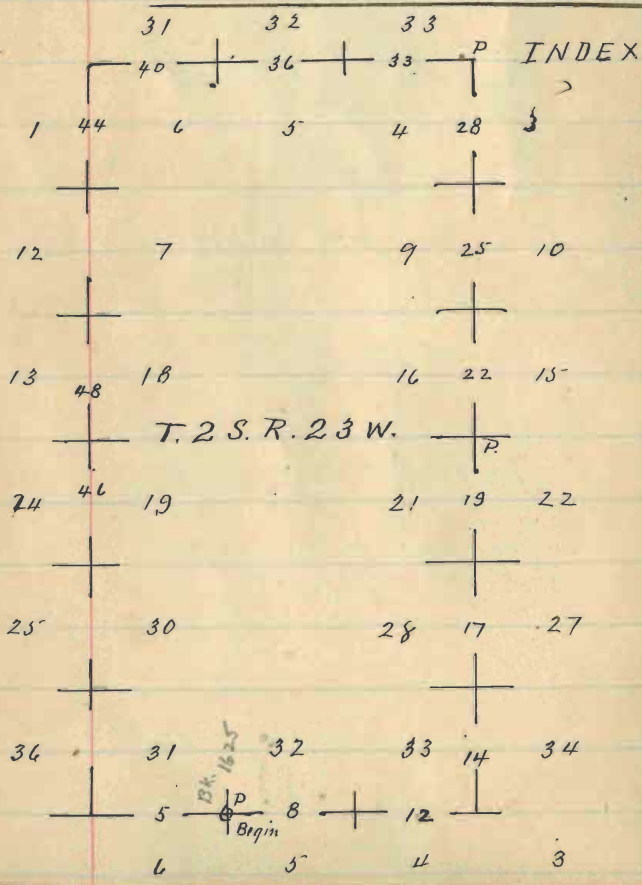 31 32 33
40 36 33 P INDEX
1 44 6 5 4 28 3
12 7 9 25 10
13 48 18 16 22 15
T. 2 S. R. 23 W. P.
24 46 19 21 19 22
25 30 28 17 27
Bk. 1625
36 31 32 33 14 34
5 P 8 12
Begin
6 5 4 3